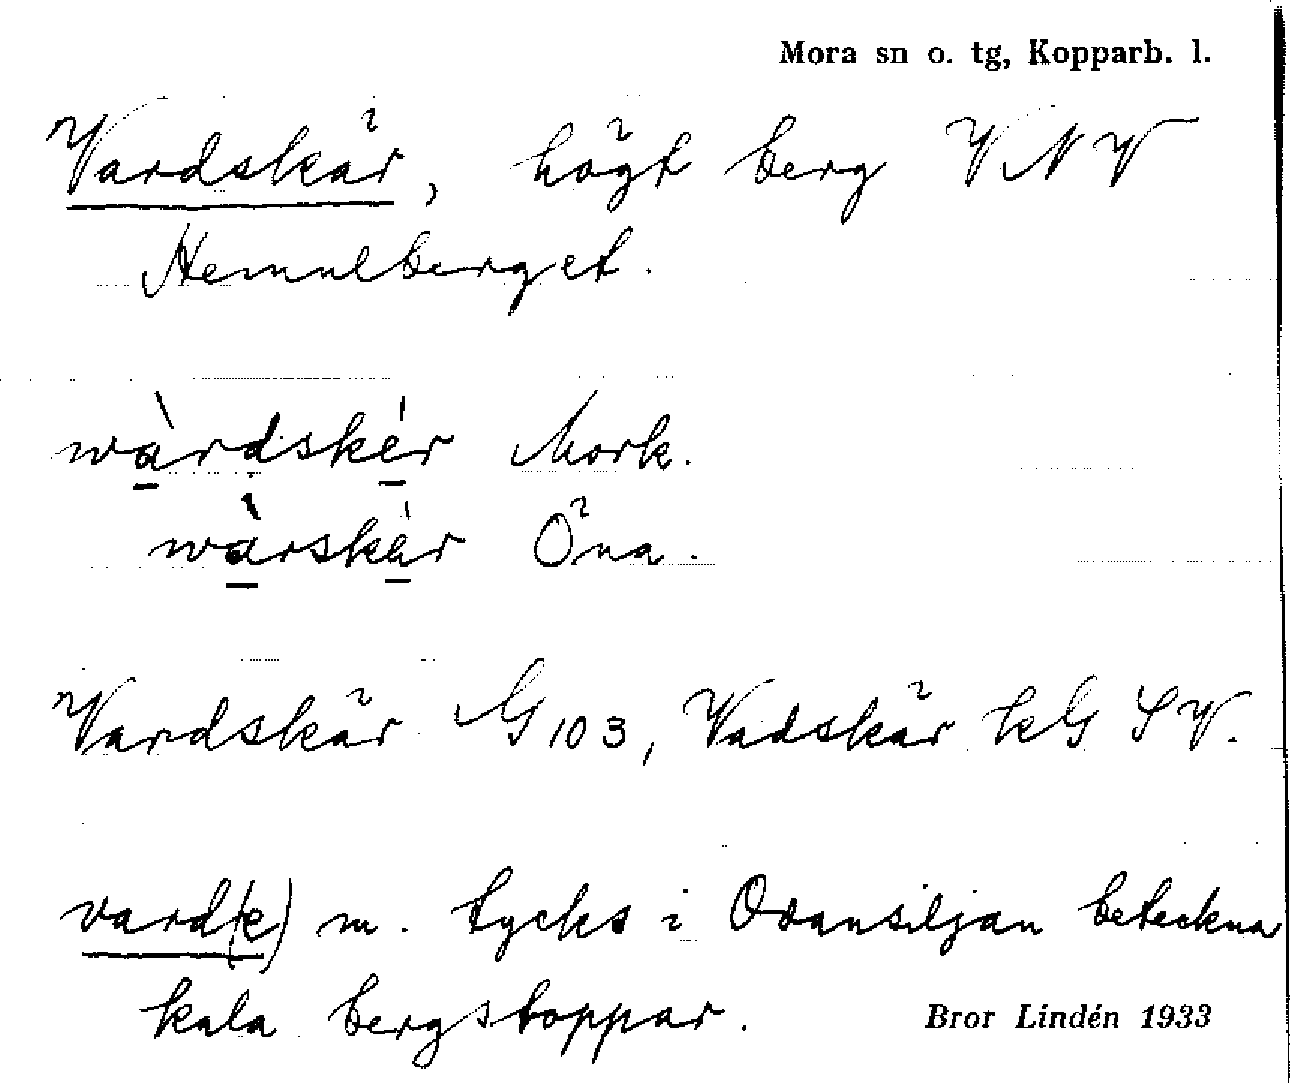 Mora sn o. tg, Kopparb. l.
Vardskär, högt berg VNV
Hemulberget.
wàrdskér Mork.
wàrskár Öna.
Vardskär G 103, Vadskär kG SV.
vard(e) m. tycks i Ovansiljan beteckna
kala bergstoppar.
Bror Lindén 1933